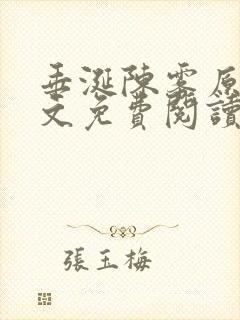 垂涎陳雾原
文免費閱讀
張玉梅